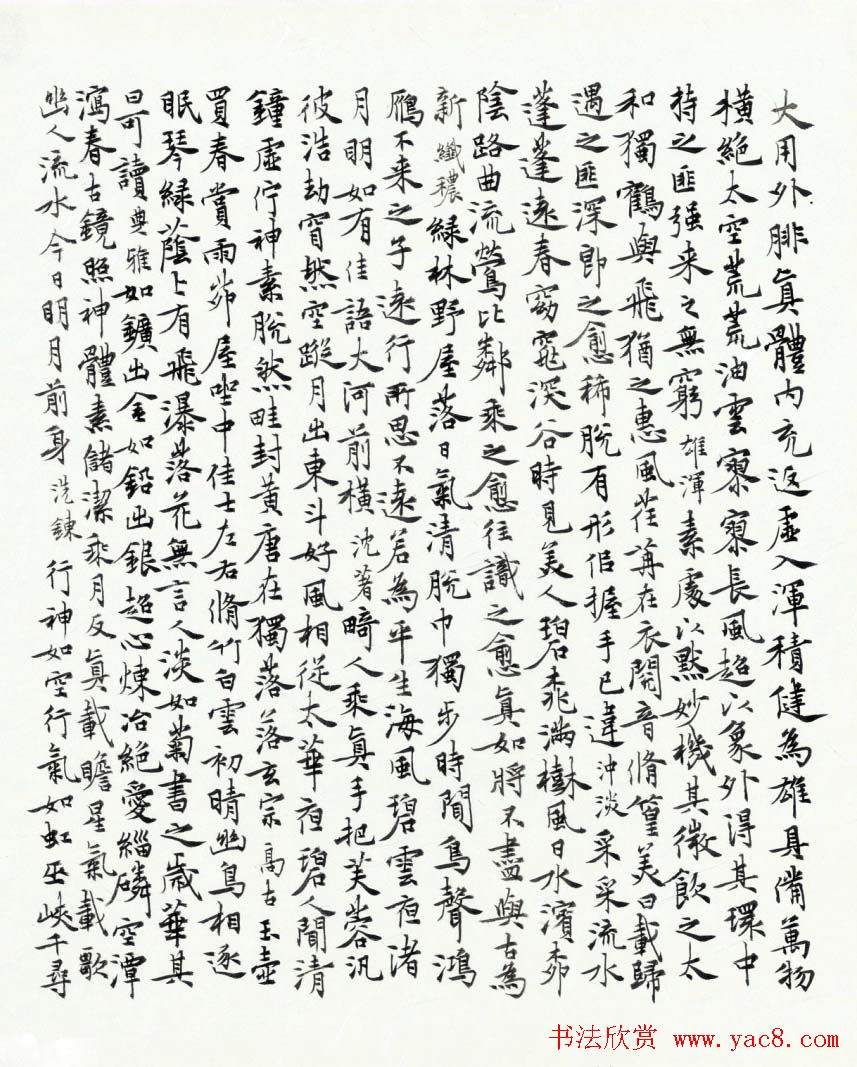 大用外腓真體內充返虛入渾積健為雄具備萬物
橫絕太空荒荒油雲寥寥長風超以象外得其環中
持之匪强来之無窮 雄渾 素處以默妙機其微飲之太
和獨鶴與飛猶之惠風荏苒在衣閱音脩篁美曰載歸
遇之匪深即之愈稀脫有形似握手已違 沖淡 采采流水
蓬蓬遠春窈窕深谷時見美人碧桃滿樹風日水濱柳
陰路曲流鶯比鄰乘之愈往識之愈真如將不盡與古為
新 纖穠 綠林野屋落日氣清脫巾獨步時聞鳥聲鴻
雁不来之子遠行所思不遠若為平生海風碧雲夜渚
月明如有佳語大河前橫 沈著 畸人乘真手把芙蓉汎
彼浩劫窅然空蹤月出東斗好風相從太華夜碧人聞清
鐘虛佇神素脫然畦封黃唐在獨落落玄宗 高古 玉壺
買春賞雨茆屋坐中佳士左右脩竹白雲初晴幽鳥相逐
眠琴綠蔭上有飛瀑落花無言人淡如菊書之歲華其
曰可讀 典雅 如鑛出金如鉛出銀超心煉冶絕愛緇磷空潭
瀉春古鏡照神體素儲潔乘月反真載瞻星氣載歌
幽人流水今日明月前身 洗鍊 行神如空行氣如虹巫峽千尋
书法欣赏 www.yac8.com